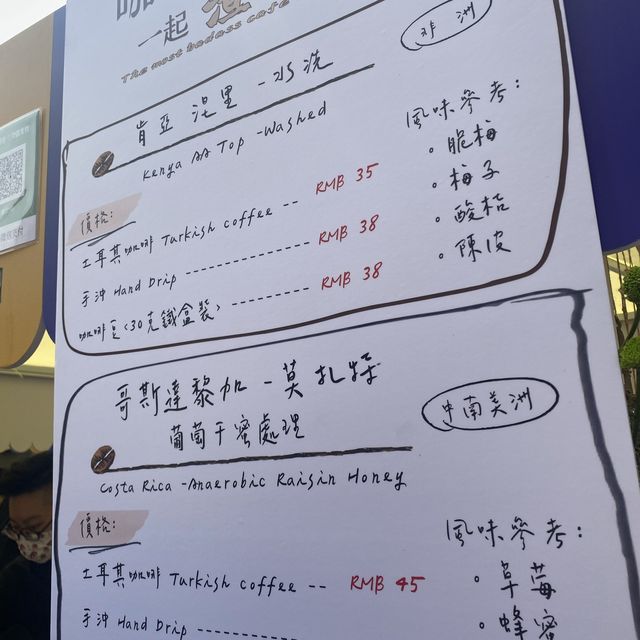 咖
一起 渣
The most badass cafe
非洲
肯亞 涅里 - 水洗
Kenya AA Top - Washed
風味參考:
。脆梅
。梅子
。酸桔
。陳皮
價格:
土耳其咖啡 Turkish coffee -- RMB 35
手沖 Hand Drip ------------ RMB 38
咖啡豆(30克鐵盒裝) -------- RMB 38
哥斯達黎加 - 莫扎特
葡萄干蜜處理
中南美洲
Costa Rica - Anaerobic Raisin Honey
價格:
風味參考:
。草莓
。蜂蜜
土耳其咖啡 Turkish coffee -- RMB 45
手沖 Hand Drip ----------